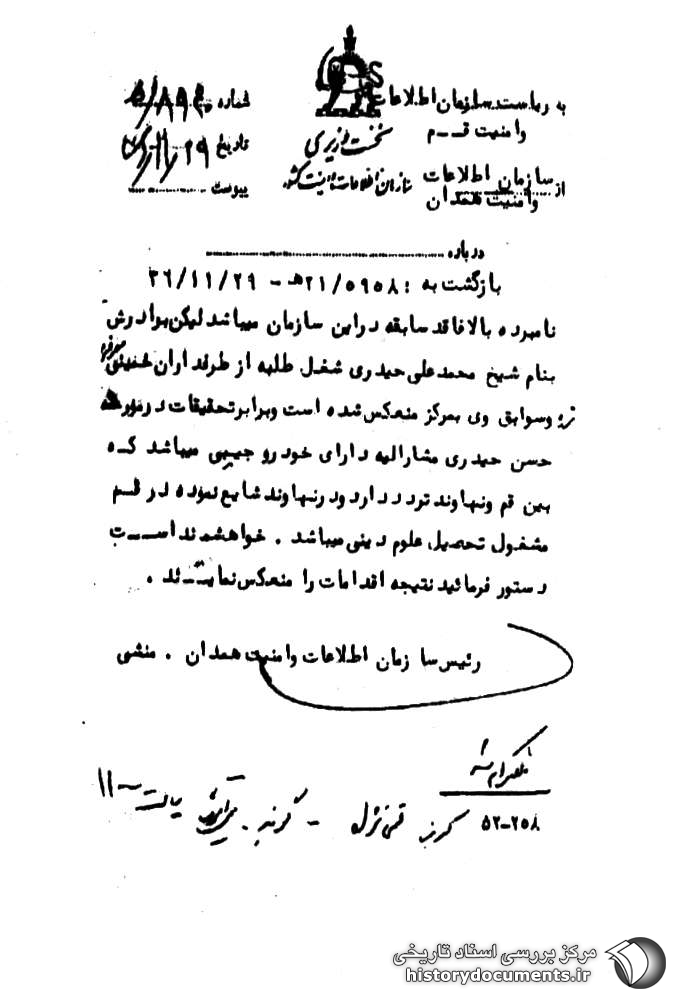 به ریاست سازمان اطلاعات
وامنیت قـــم
از سازمان اطلاعات
وامنیت همدان
نخست وزیری
سازمان اطلاعات و امنیت کشور
شماره
تاریخ
پیوست
درباره
بازگشت به : ۲۱/۵۹۵۸هـ - ۳۶/۱۱/۲۹
نامبرده بالا فاقد سابقه دراین سازمان میباشد لیکن برادرش
بنام شیخ محمدعلی حیدری شغل طلبه از طرفداران خمینی
وسوابق وی بمرکز منعکس شده است وبرابر تحقیقات در مورد
حسن حیدری مشارالیه دارای خودرو جیپی میباشد کــه
بین قم ونهاوند تردد دارد ودرنهاوند شایع نموده در قــم
مشغول تحصیل علوم دینی میباشد . خواهشمند اســـت
دستور فرمائید نتیجه اقدامات را منعکس نماینــد .
رئیس سازمان اطلاعات وامنیت همدان . منشی
تلگرام شد
۵۲-۲۵۸
مرکز بررسی اسناد تاریخی
historydocuments.ir